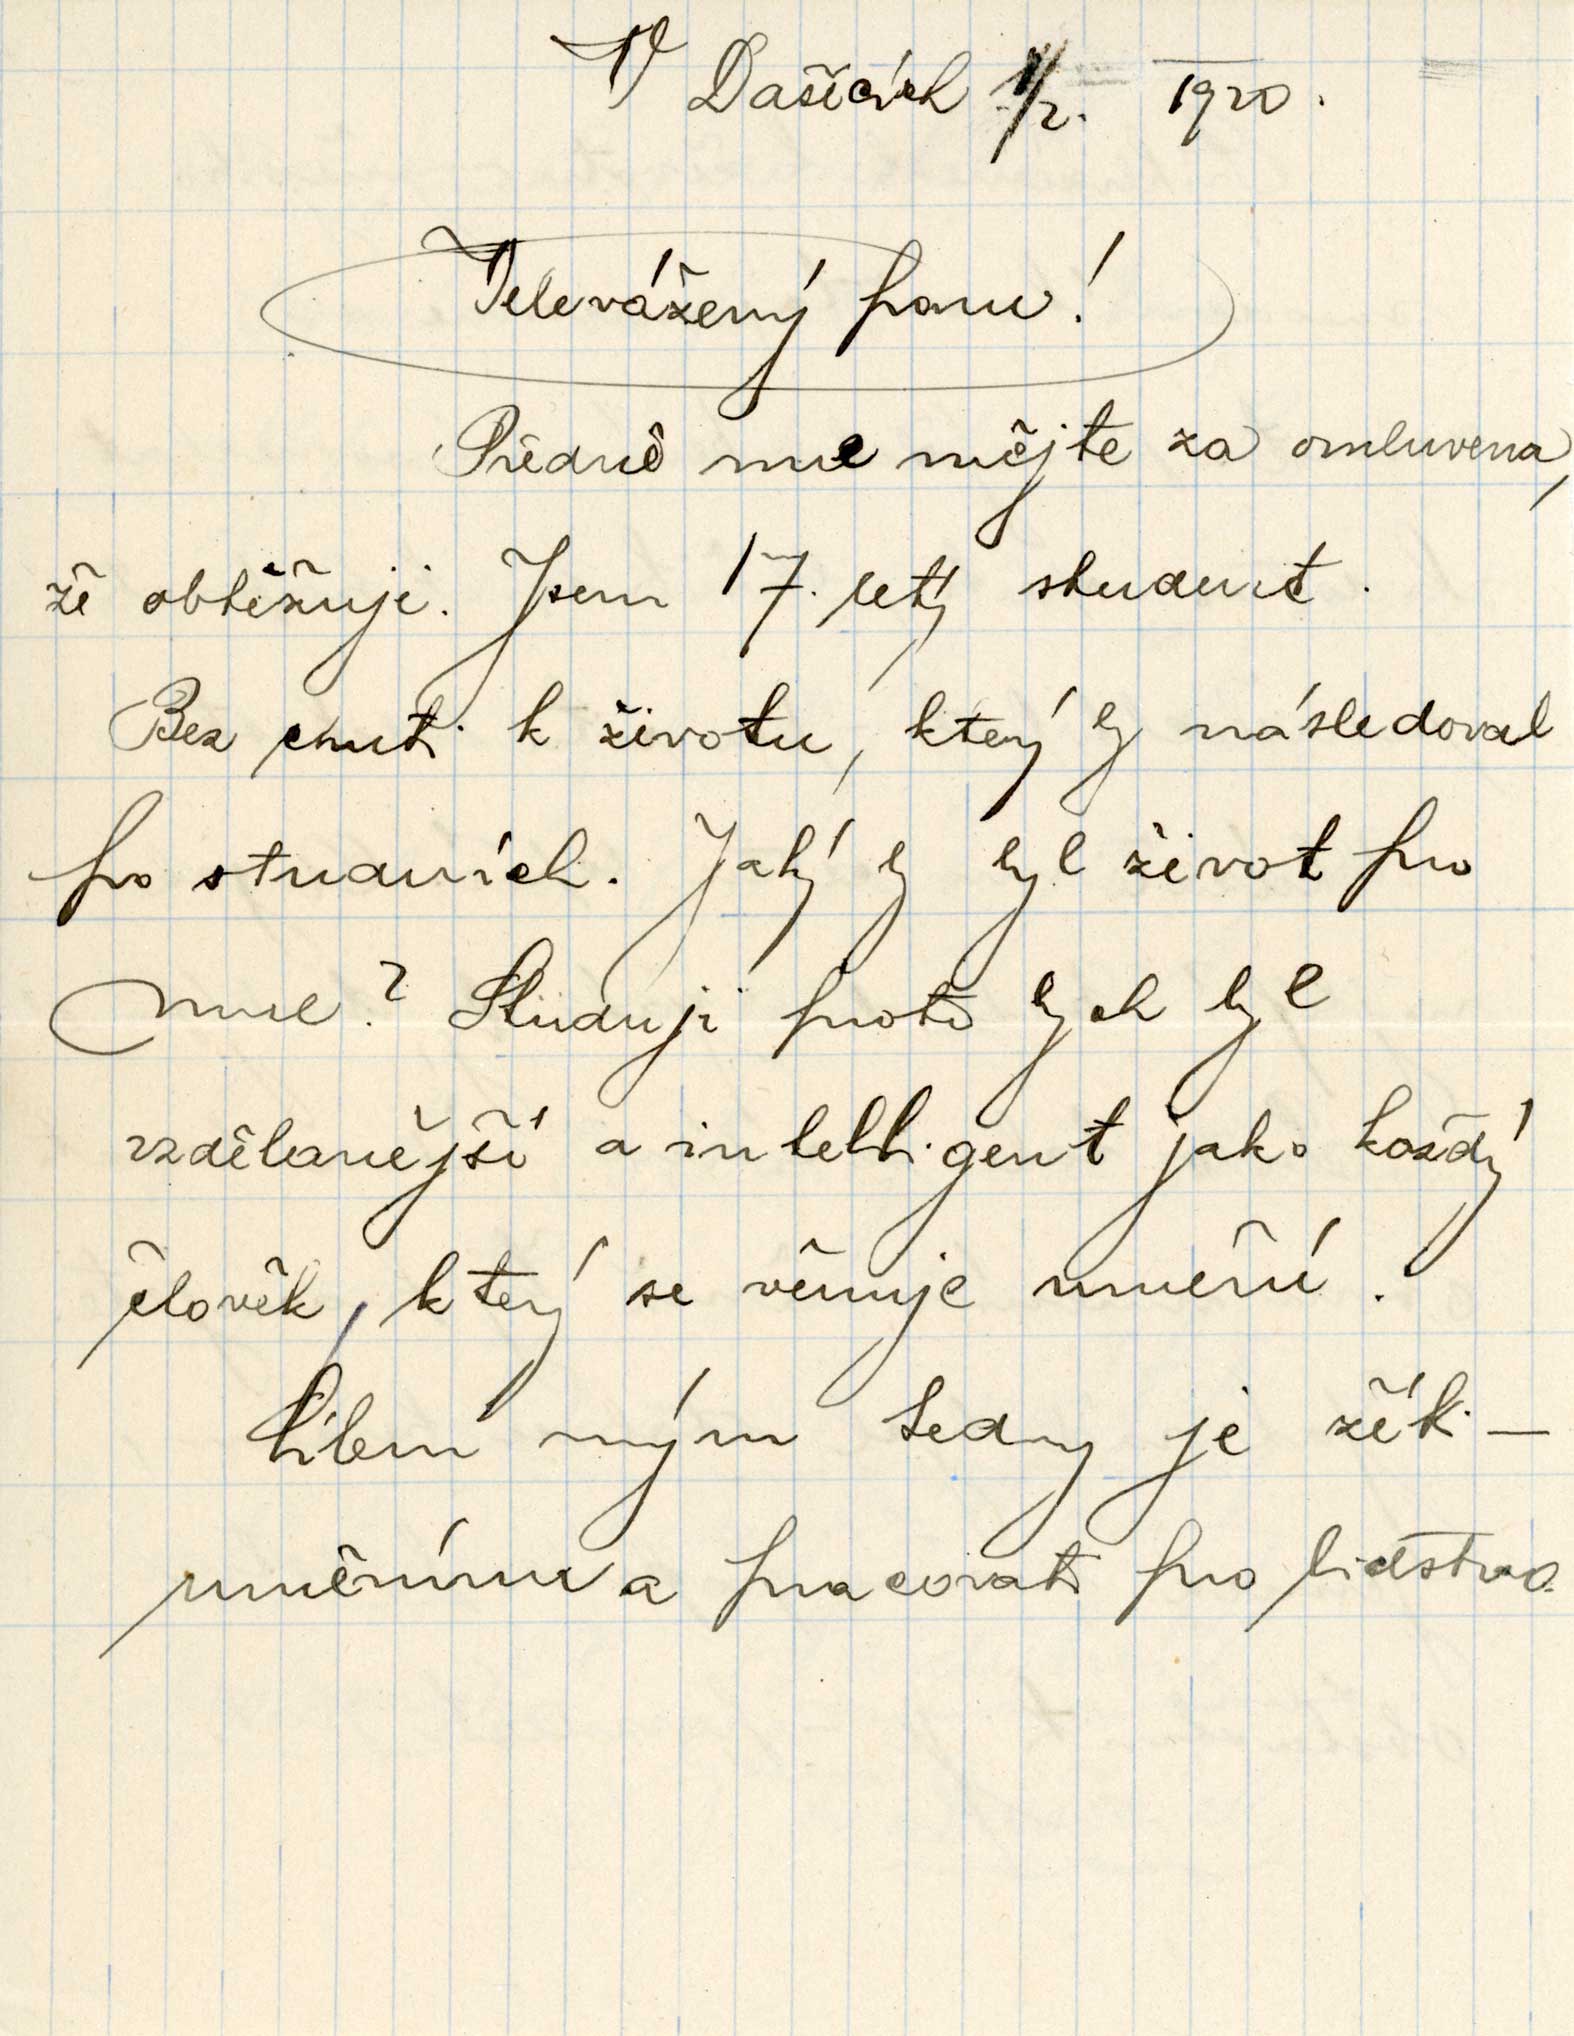 V Dašicích 1/2. 1920.
Velevážený pane!
Předně mne mějte za omluvena,
že obtěžuji. Jsem 17. letý student.
Bez chuti k životu, který by následoval
po studiích. Jaký by byl život pro
mne? Studuji proto bych byl
vzdělanější a intelligent jako každý
člověk, který se věnuje umění.
Cílem mým tedy je žíti –
uměním a pracovati pro lidstvo.